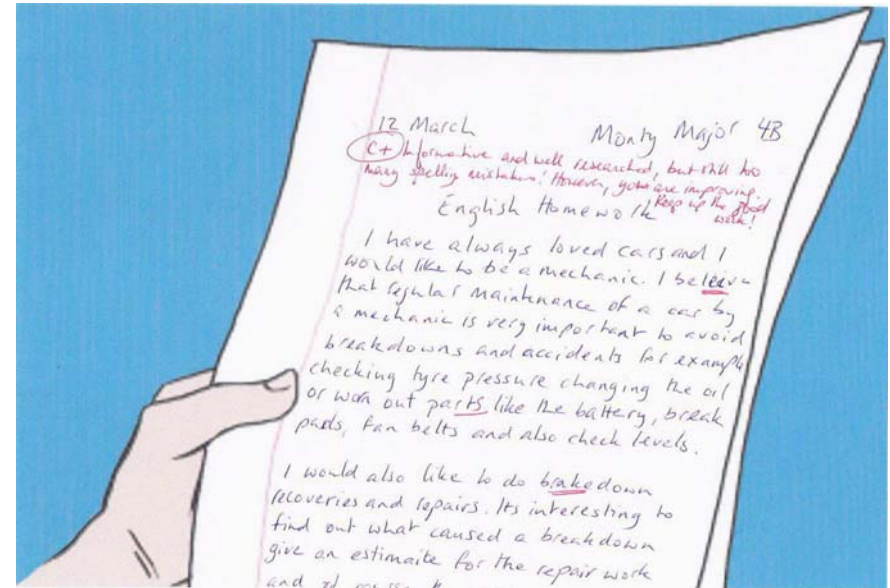 12 March Monty Major 4B
C+ Informative and well researched, but still too
many spelling mistakes! However, you are improving.
Keep up the good
English Homework work!
I have always loved cars and I
would like to be a mechanic. I beleive
that regular maintenance of a car by
a mechanic is very important to avoid
breakdowns and accidents for example
checking tyre pressure changing the oil
or worn out parts like the battery, break
pads, fan belts and also check levels.
I would also like to do brakedown
recoveries and repairs. Its interesting to
find out what caused a breakdown
give an estimaite for the repair work
and of course